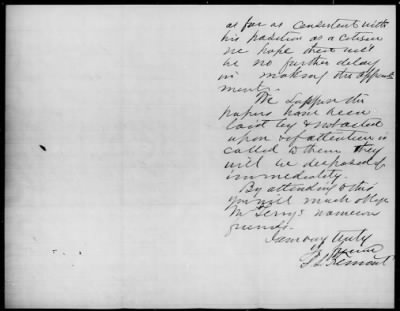 as far as consistent with
his position as a citizen
we hope there will
be no further delay
in making the appoint
ment.
We suppose the
papers have been
laid by & not acted
upon & if attention is
called to them they
will be disposed of
immediately.
By attending to this
you will much oblige
Mr Terrys numerous
friends.
I am very truly
yours